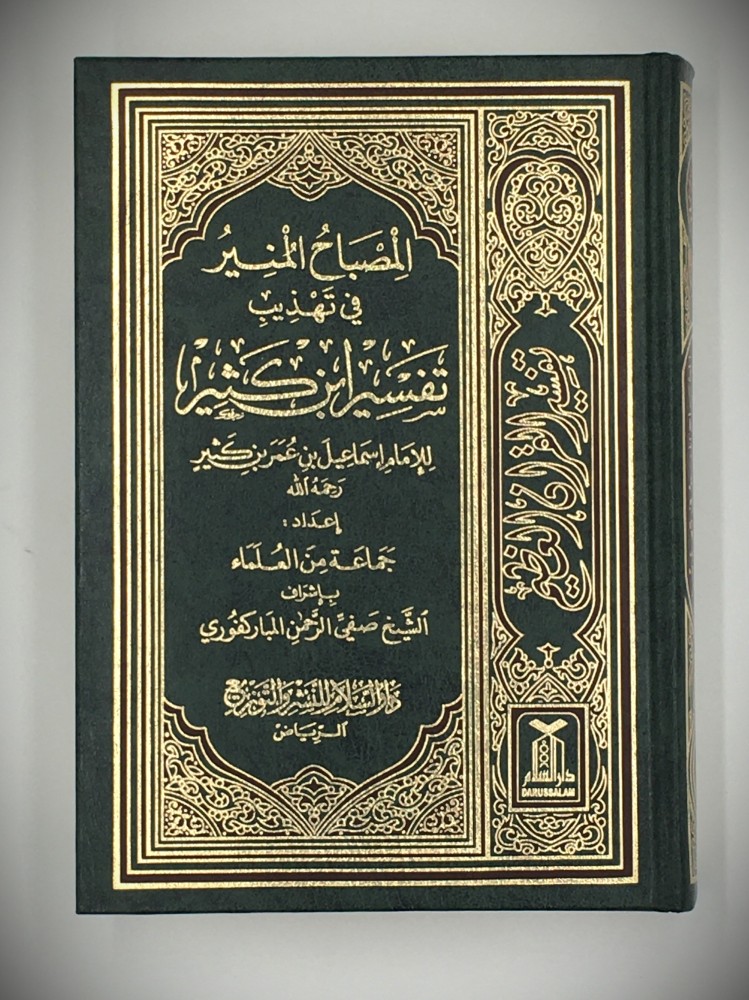 المِصْبَاحُ المُنِيرُ
في تَهْذِيبِ
تَفْسِيرِ ابْنِ كَثِيرٍ
لِلإمَامِ إسْمَاعِيلَ بنِ عُمَرَ بنِ كَثِيرٍ
رَحِمَهُ الله
إعْدَاد:
جَمَاعَة مِنَ العُلَمَاء
بِإشْرَاف
الشَّيْخ صَفِيِّ الرَّحْمٰنِ المُبَارَكفُوري
دار السلام للنشر والتوزيع
الرِّيَاض
تفسير القرآن العظيم
دار السلام
DARUSSALAM